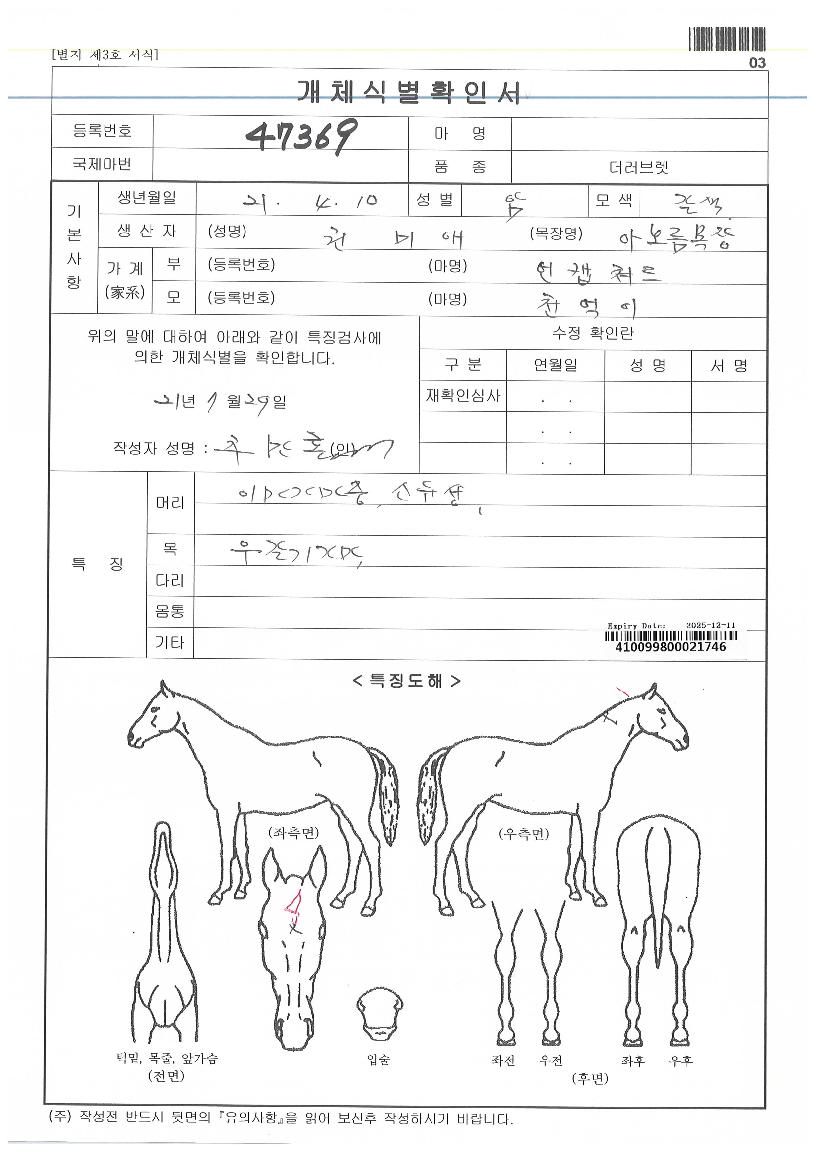 [별지 제3호 서식]
03
개체식별확인서
등록번호 47369 마 명
국제마번 품 종 더러브렛
기본사항
생년월일 21. 4. 10 성별 암 모색 갈색
생 산 자 (성명) 천 미 애 (목장명) 아보름목장
가계(家系) 부 (등록번호) (마명) 언캡처드
모 (등록번호) (마명) 천억이
위의 말에 대하여 아래와 같이 특징검사에
의한 개체식별을 확인합니다.
21년 7월 29일
작성자 성명 : (인)
수정 확인란
구 분 연월일 성 명 서 명
재확인심사 . .
. .
. .
특 징
머리
목
다리
몸통
기타
Expiry Date: 2025-12-11
410099800021746
< 특징도해 >
(좌측면) (우측면)
턱밑, 목줄, 앞가슴
(전면)
입술
좌전 우전 좌후 우후
(후면)
(주) 작성전 반드시 뒷면의 『유의사항』을 읽어 보신후 작성하시기 바랍니다.